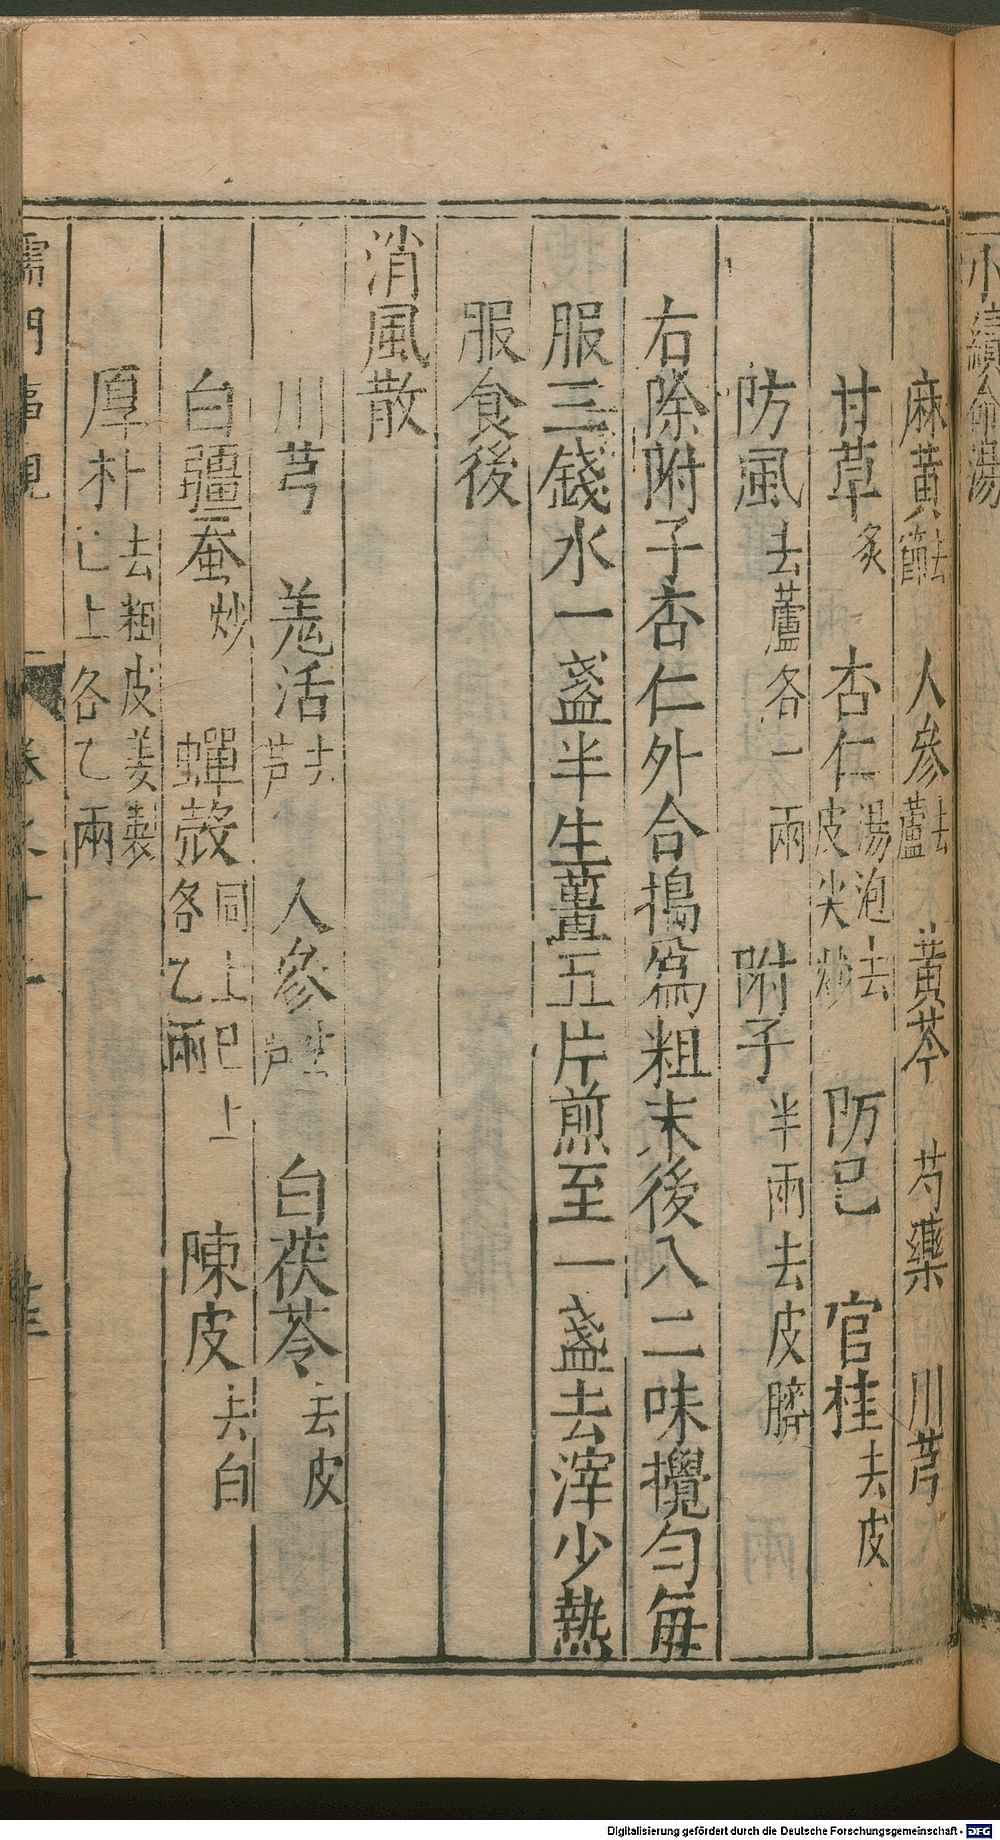 小續命湯
麻黃去節 人參去蘆 黃芩 芍藥 川芎
甘草炙 杏仁湯泡去皮尖炒 防已 官桂去皮
防風去蘆各一兩 附子半兩去皮臍
右除附子杏仁外合搗爲粗末後入二味攪勻每
服三錢水一盞半生薑五片煎至一盞去滓少熱
服食後
消風散
川芎 羗活去芦 人參去芦 白茯苓去皮
白殭蚕炒 蟬殼同上已上各乙兩 陳皮去白
厚朴去粗皮姜製已上各乙兩
儒門事親 卷 十二
Digitalisierung gefördert durch die Deutsche Forschungsgemeinschaft - DFG